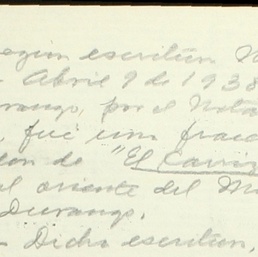 según escritura
Abril 9 de 1938
Durango, por el Nota
fué una frac
de "El Carri
al oriente del M
Durango.
Dicha escritura,